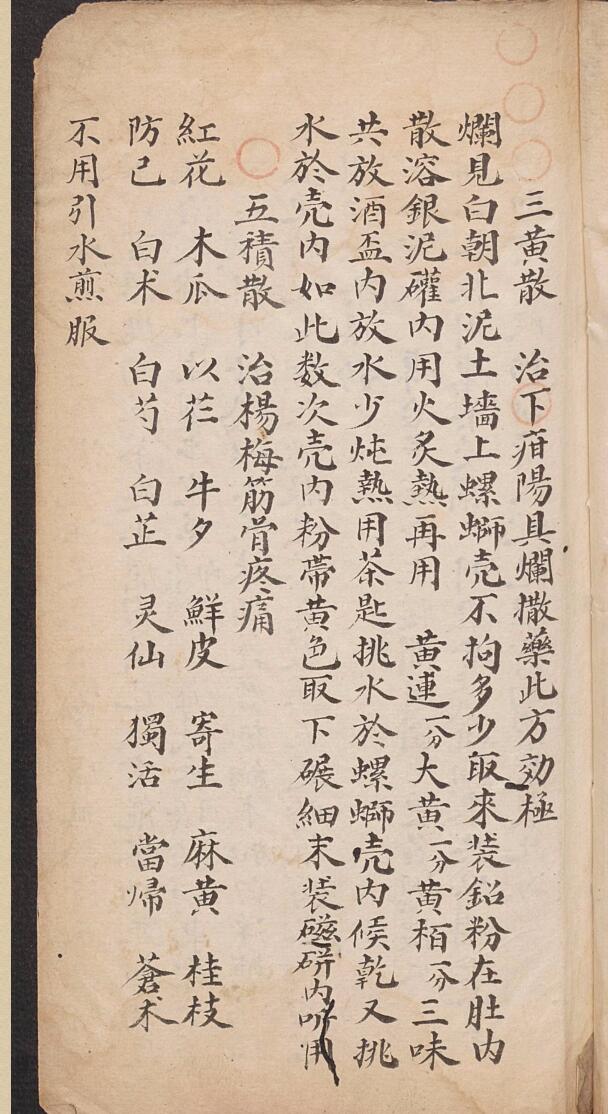 三黃散　治下疳陽具爛撒藥此方効極
爛見白朝北泥土墻上螺螄壳不拘多少取來装鉛粉在肚内
散溶銀泥礶内用火炙熱再用　黃連一分大黃一分黃栢一分三味
共放酒盃内放水少炖熱用茶匙挑水於螺螄壳内候乾又挑
水於壳内如此数次壳内粉帶黃色取下碾細末装磁硑内听用
五積散　治楊梅筋骨疼痛
紅花　木瓜　以苡　牛夕　鮮皮　寄生　麻黃　桂枝
防己　白术　白芍　白芷　灵仙　獨活　當帰　蒼术
不用引水煎服